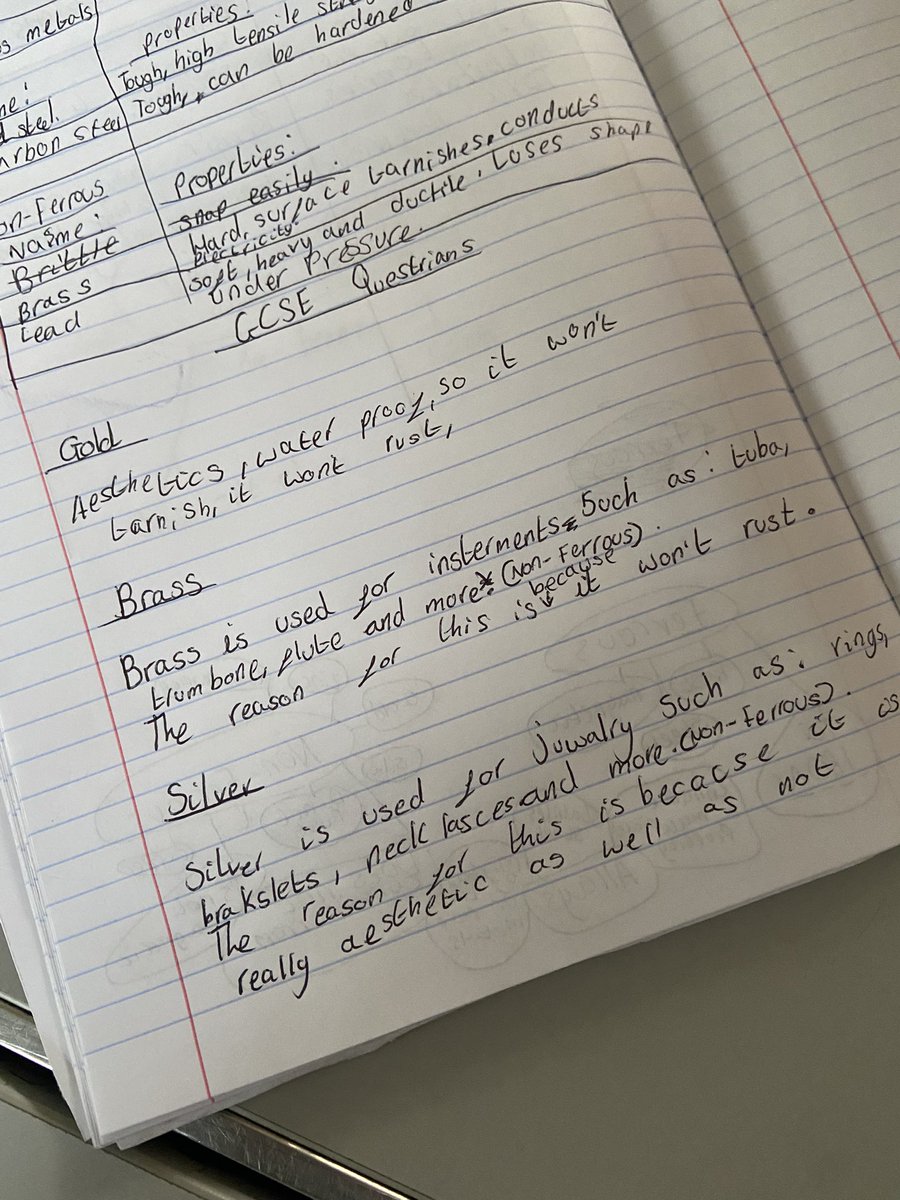 s metals properties:
Tough, high tensile
steel. Tough, can be hardened
arbon steel
on-Ferrous properties:
Name: snap easily.
Brittle Hard, surface tarnishes, conducts
Brass electricity.
Lead soft, heavy and ductile. Loses shape
under Pressure.
GCSE Questrians
Gold
Aesthetics, water proof, so it won't
tarnish, it wont rust,
Brass
Brass is used for insterments Such as: tuba,
trumbone, flute and more. (Non-Ferrous).
The reason for this is because it won't rust.
Silver
Silver is used for juwalry such as: rings,
brakslets, neck lasces and more. (Non-Ferrous).
The reason for this is becacse it is
really aesthetic as well as not